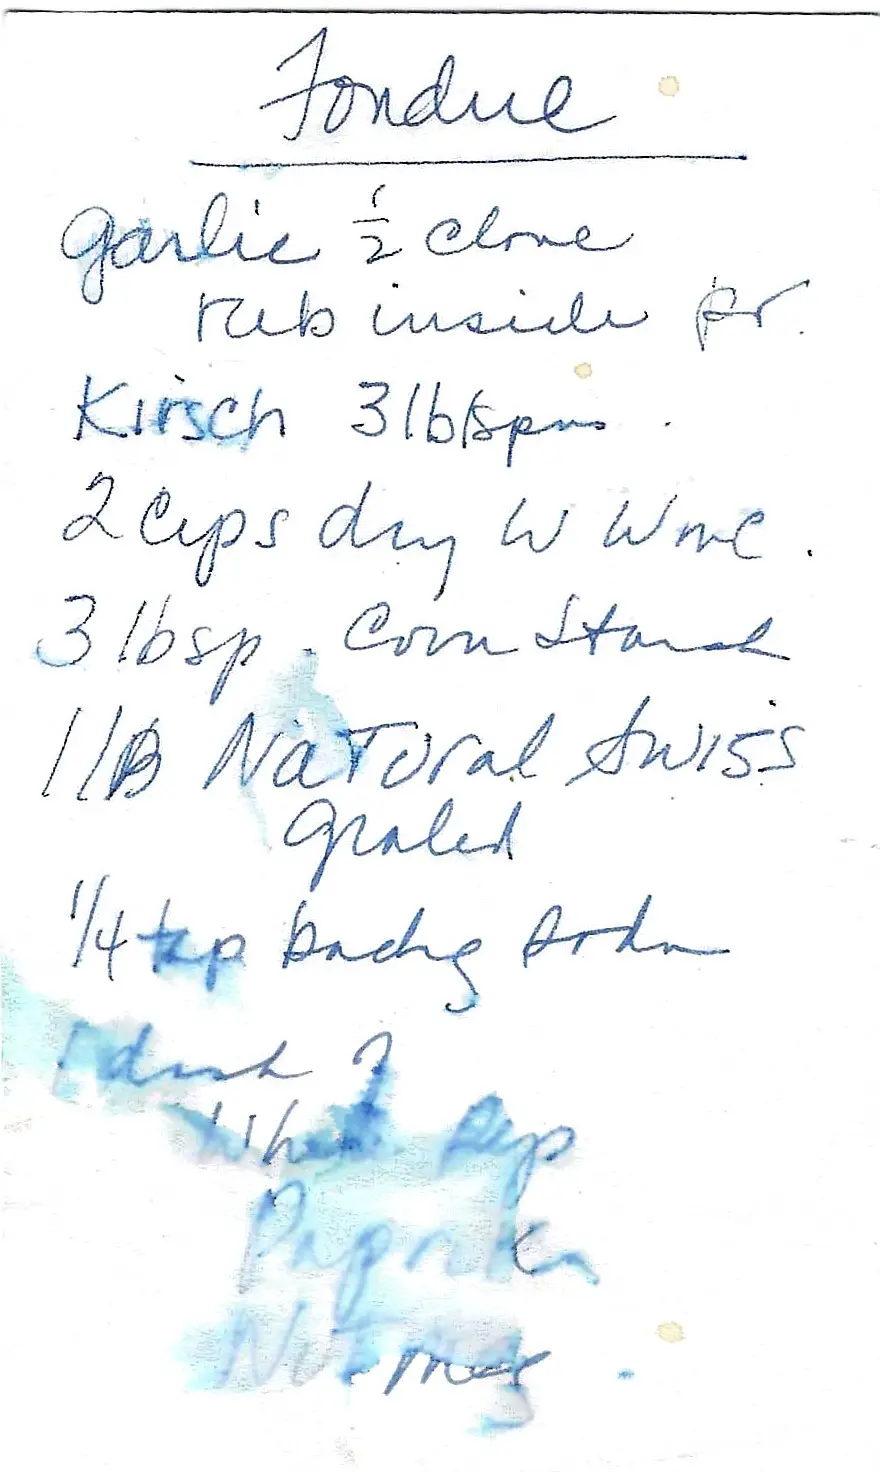 Fondue
Garlic 1/2 clove
rub inside
Kirsch 3 tblspns.
2 Cups dry W Wine.
3 tbsp. Corn Starch
1 lB NaTural Swiss
grated
1/4 tsp backg soda
1 dash ?
White Pep
Paprika
Nutmeg.